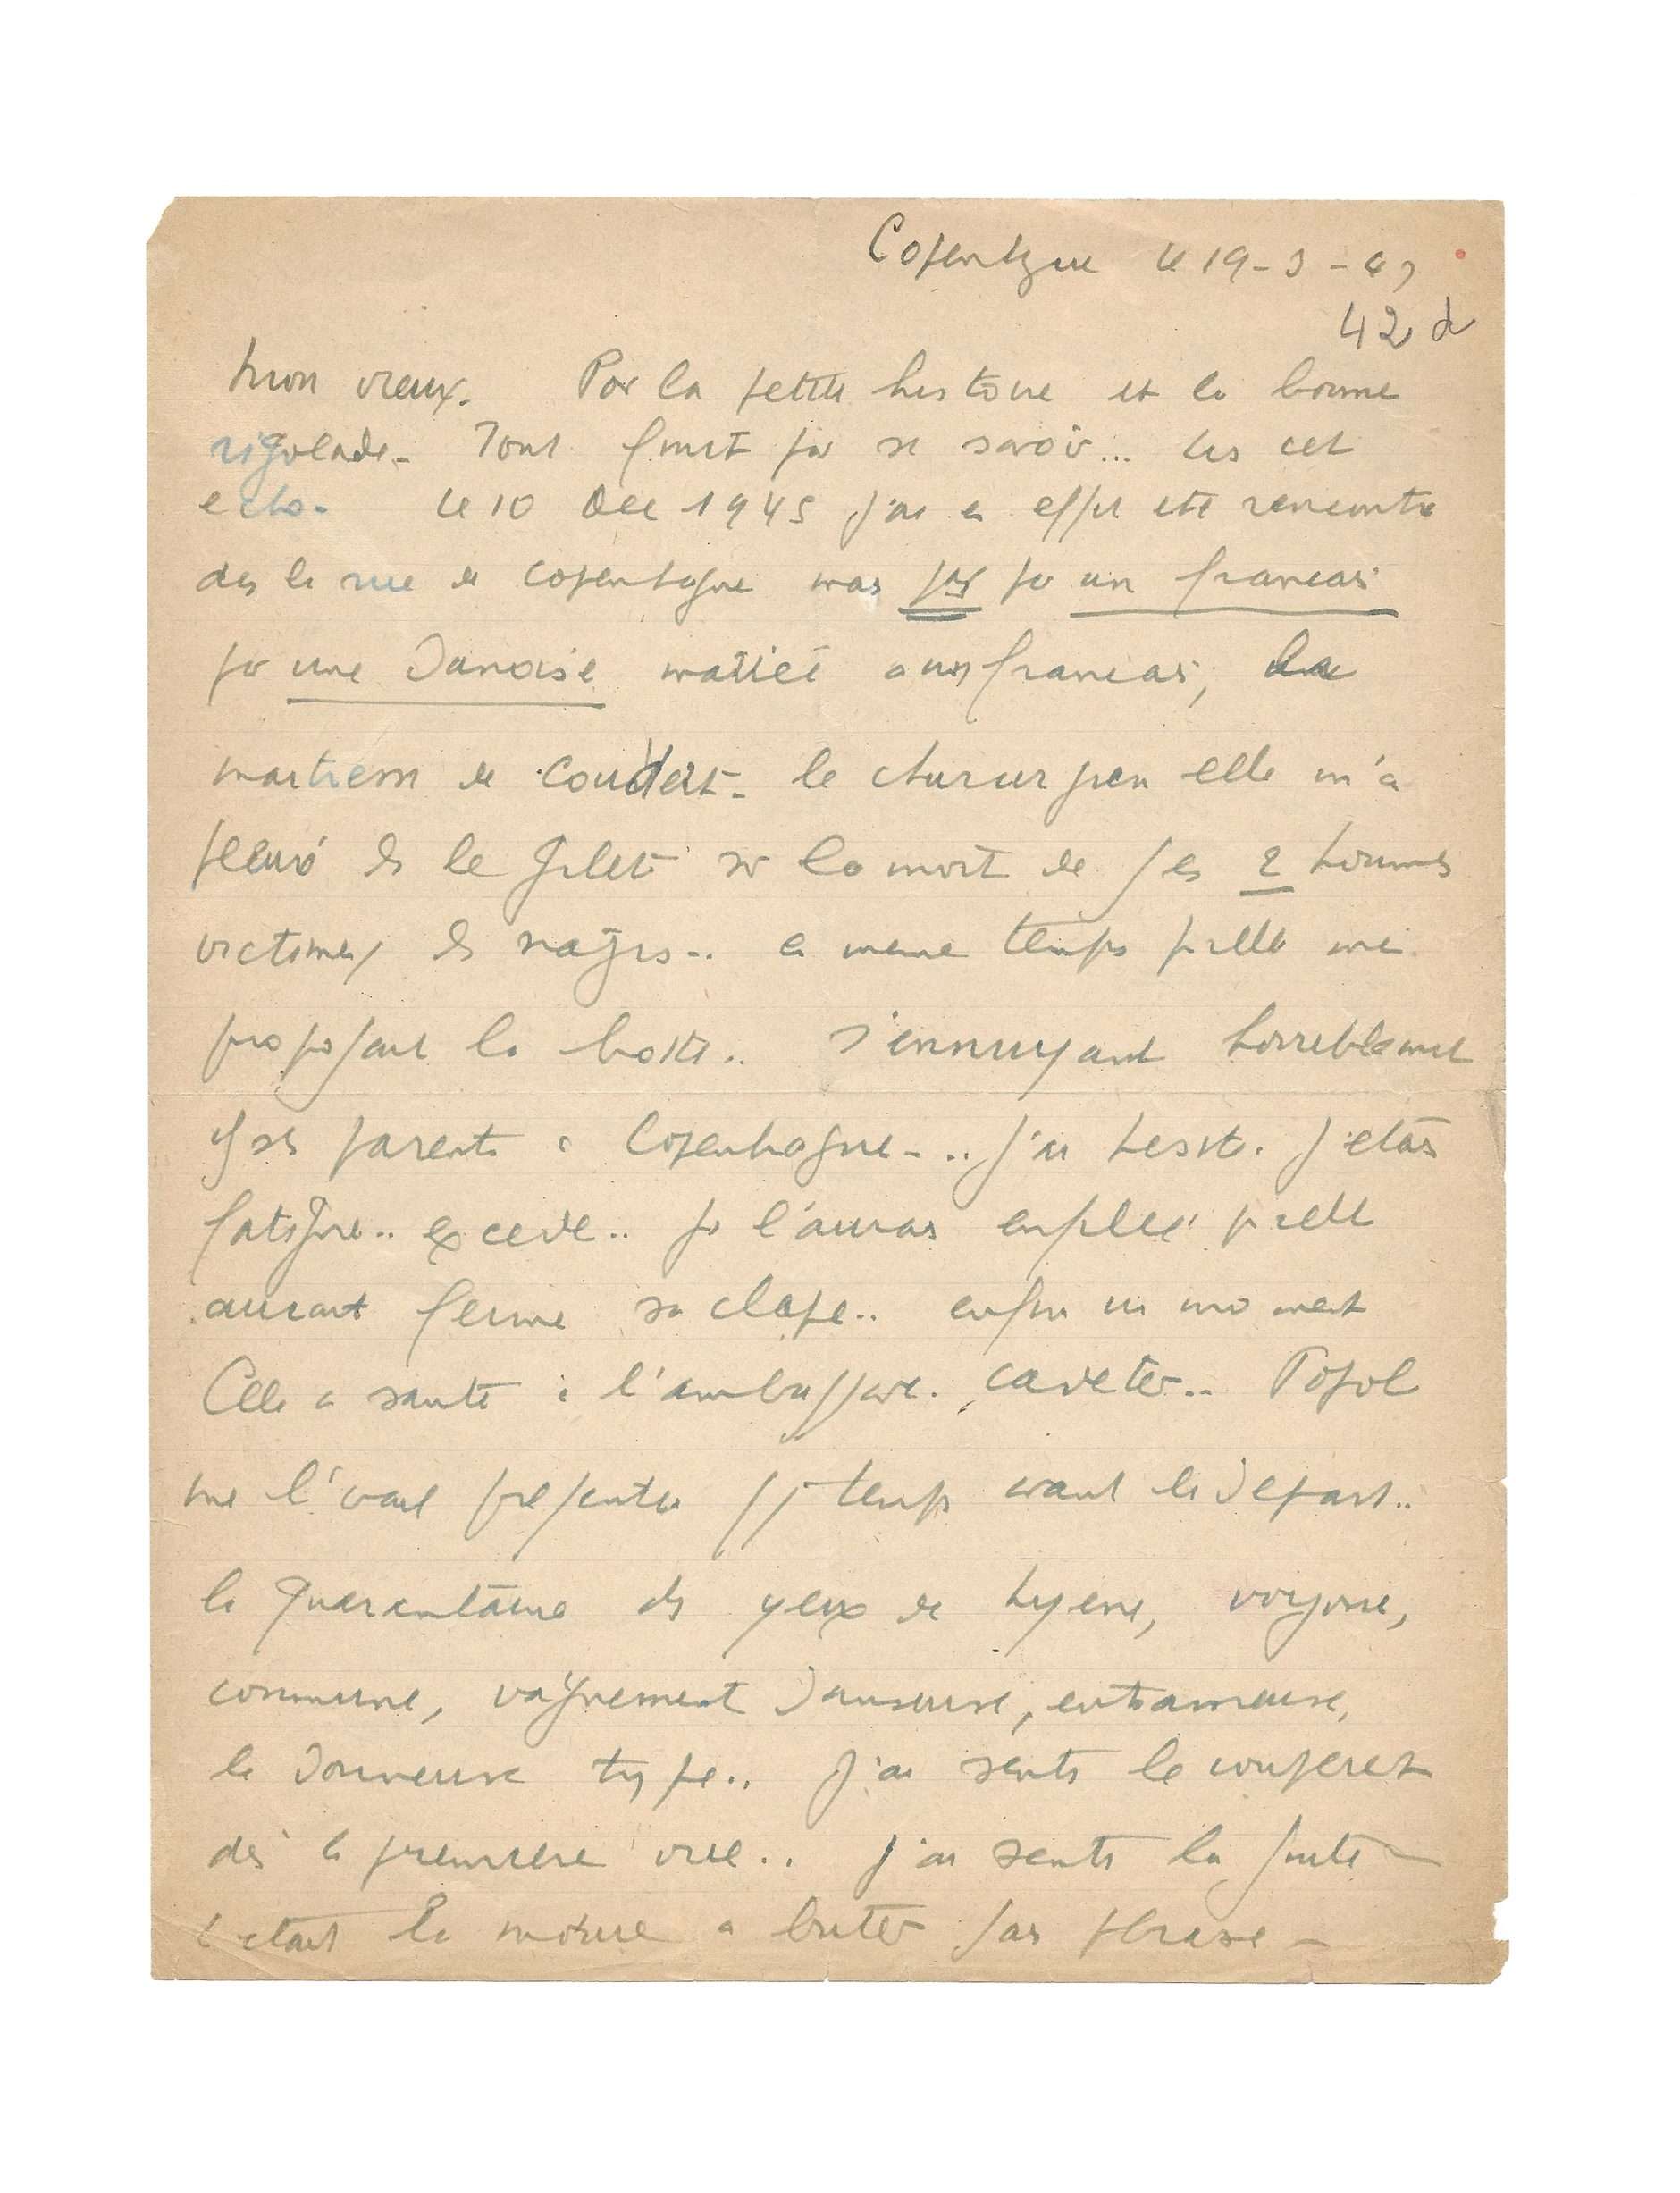 Copenhague le 19-3-47
42 d
Mon vieux. Par la petite histoire et la bonne
rigolade. Tout finit par se savoir... Lis cet
echo. Le 10 Dec 1945 j'ai en effet été rencontré
des la rue de Copenhague mais pas par un francais
par une Danoise mariée a un francais, la
maitresse de Coudert. le chirurgien elle m'a
pleuré ds le gilet sur la mort de ses 2 hommes
victimes ds nazis.. en meme temps qu'elle me
proposait la botte.. s'ennuyant horriblement
chez ses parents à Copenhague... j'ai hesité. J'etais
fatigué.. excedé.. je l'aurais enfilée qu'elle
aurait fermé sa clape.. enfin un moment
Elle a sauté à l'ambassade. caveter.. Popol
me l'avait presentée qq temps avant le départ..
la quarantaine ds yeux de hyene, voyoue,
commune, vaguement danseuse, entraineuse,
la donneuse type.. J'ai senti le couperet
dès la premiere vue.. j'ai senti la fuite
c'etait la moure a buter sans phrase -